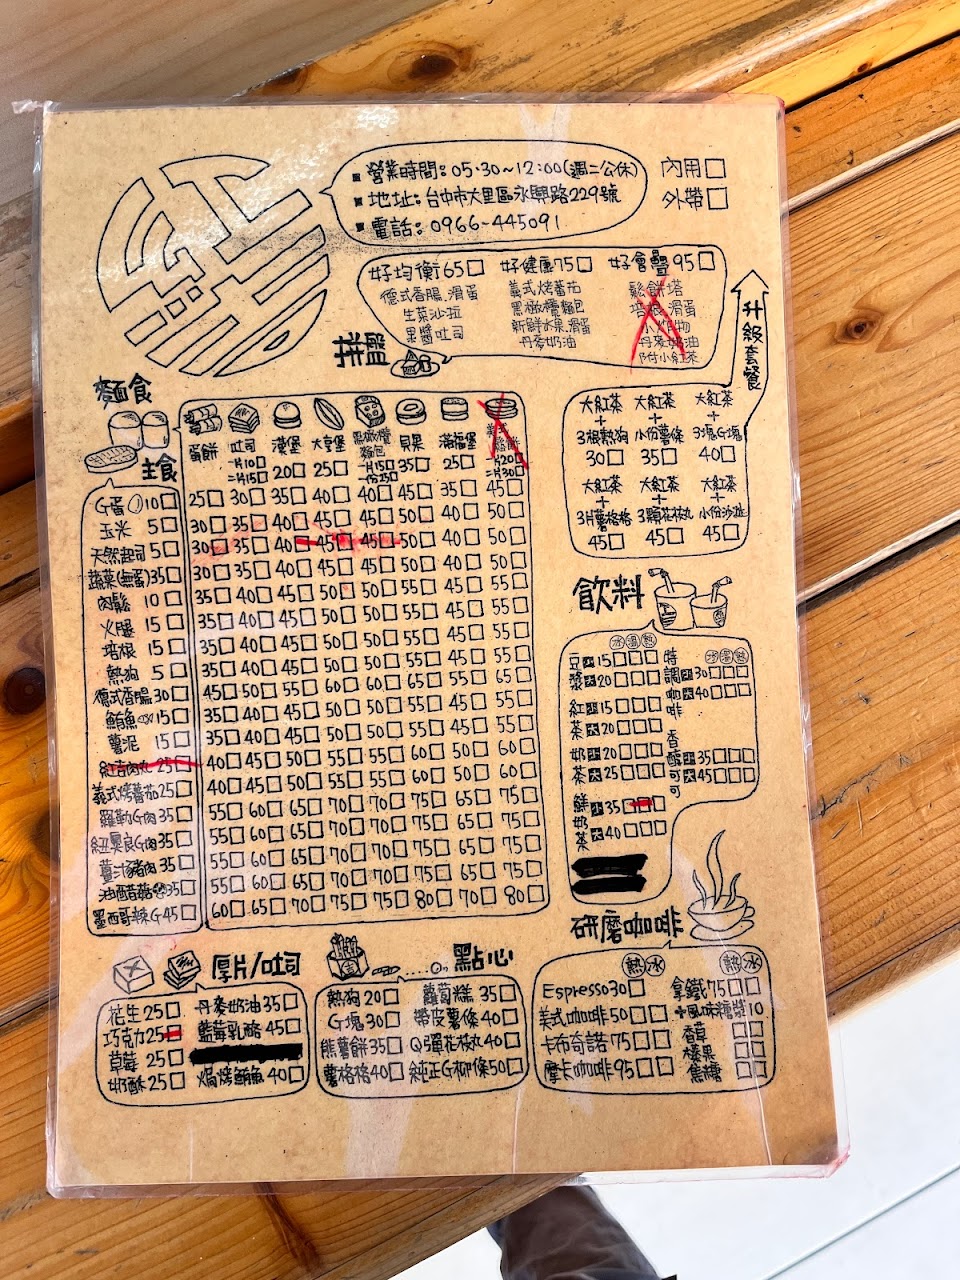 營業時間：05:30~12:00(週二公休)
地址：台中市大里區永興路229號
電話：0966-445091
內用□
外帶□
拼盤
好均衡65□ 好健康75□ 好會疊95□
德式香腸.滑蛋 義式烤蕃茄 鬆餅塔
生菜沙拉 黑橄欖麵包 培根.滑蛋
果醬吐司 新鮮水果.滑蛋 小炸物
丹麥奶油 丹麥奶油
附小紅茶
升級套餐
大紅茶 大紅茶 大紅茶
+ + +
3根熱狗 小份薯條 3塊G塊
30□ 35□ 40□
大紅茶 大紅茶 大紅茶
+ + +
3片薯格格 3顆花枝丸 小份沙拉
45□ 45□ 45□
麵食
主食
蛋餅 吐司 漢堡 大亨堡 黑橄欖麵包 貝果 滿福堡
一片10□ 二片15□ 20□ 25□ 一片15□ 一份25□ 35□ 25□ 一片20□ 二片30□
G蛋 10□ 25□ 30□ 35□ 40□ 40□ 45□ 35□ 45□
玉米 5□ 30□ 35□ 40□ 45□ 45□ 50□ 40□ 50□
天然起司 5□ 30□ 35□ 40□ 45□ 45□ 50□ 40□ 50□
蔬菜(無蛋)35□ 30□ 35□ 40□ 45□ 45□ 50□ 40□ 50□
肉鬆 10□ 35□ 40□ 45□ 50□ 50□ 55□ 45□ 55□
火腿 15□ 35□ 40□ 45□ 50□ 50□ 55□ 45□ 55□
培根 15□ 35□ 40□ 45□ 50□ 50□ 55□ 45□ 55□
熱狗 5□ 35□ 40□ 45□ 50□ 50□ 55□ 45□ 55□
德式香腸30□ 45□ 50□ 55□ 60□ 60□ 65□ 55□ 65□
鮪魚 15□ 35□ 40□ 45□ 50□ 50□ 55□ 45□ 55□
薯泥 15□ 35□ 40□ 45□ 50□ 50□ 55□ 45□ 55□
紅吉肉丸 25□ 40□ 45□ 50□ 55□ 55□ 60□ 50□ 60□
義式烤蕃茄25□ 40□ 45□ 50□ 55□ 55□ 60□ 50□ 60□
羅勒G肉35□ 55□ 60□ 65□ 70□ 70□ 75□ 65□ 75□
紐奧良G肉35□ 55□ 60□ 65□ 70□ 70□ 75□ 65□ 75□
薑汁豬肉35□ 55□ 60□ 65□ 70□ 70□ 75□ 65□ 75□
油醋菇菇35□ 55□ 60□ 65□ 70□ 70□ 75□ 65□ 75□
墨西哥辣G45□ 60□ 65□ 70□ 75□ 75□ 80□ 70□ 80□
飲料
冰溫熱 冰溫熱
豆漿 小15□□□ 大20□□□
紅茶 小15□□□ 大20□□□
奶茶 小20□□□ 大25□□□
鮮奶茶 小35□□□ 大40□□□
特調咖啡 小30□□□ 大40□□□
香醇可可 小35□□□ 大45□□□
研磨咖啡
熱冰 熱冰
Espresso30□ 拿鐵75□□
美式咖啡50□□ +風味糖漿10
卡布奇諾75□□ 香草□□
摩卡咖啡95□□ 榛果□□
焦糖□□
厚片/吐司
花生25□ 丹麥奶油35□
巧克力25□ 藍莓乳酪45□
草莓25□
奶酥25□ 焗烤鮪魚40□
點心
熱狗20□ 蘿蔔糕35□
G塊30□ 帶皮薯條40□
熊薯餅35□ Q彈花枝丸40□
薯格格40□ 純正G柳條50□